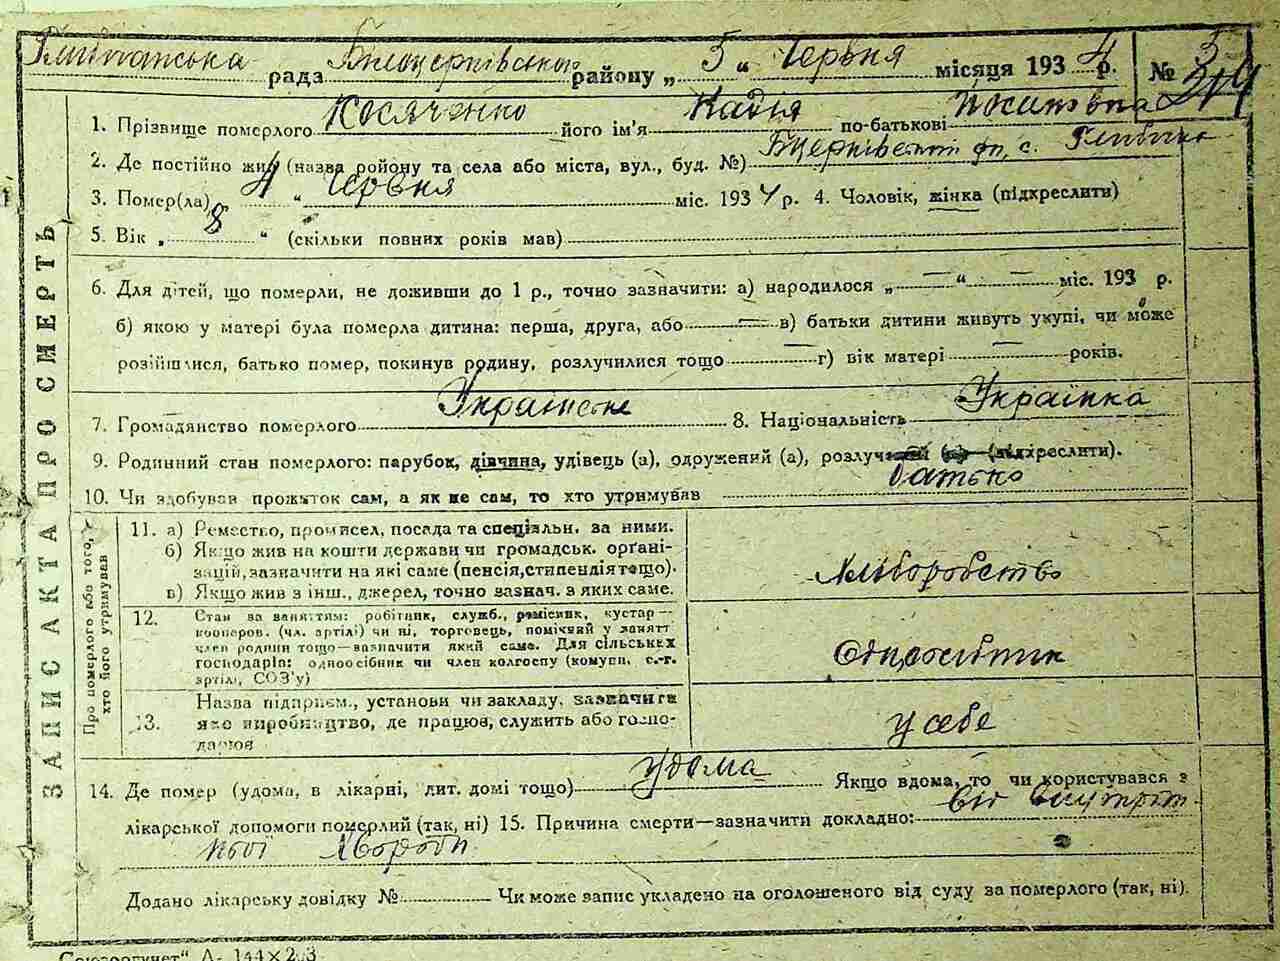 рада Білоцерківського району „ 5 “ Червня місяця 1934 р. №
1. Прізвище померлого Косяченко його ім'я Надія по-батькові
2. Де постійно жив (назва району та села або міста, вул., буд. №)
3. Помер(ла) „ 4 “ Червня міс. 1934 р. 4. Чоловік, жінка (підкреслити)
5. Вік „ 8 “ (скільки повних років мав)
6. Для дітей, що померли, не доживши до 1 р., точно зазначити: а) народилося „ — “ — міс. 193 р.
б) якою у матері була померла дитина: перша, друга, або — в) батьки дитини живуть укупі, чи може
розійшлися, батько помер, покинув родину, розлучилися тощо — г) вік матері — років.
7. Громадянство померлого Українське 8. Національність Українка
9. Родинний стан померлого: парубок, дівчина, удівець (а), одружений (а), розлучений (а) (підкреслити).
10. Чи здобував прожиток сам, а як не сам, то хто утримував батько
ЗАПИС АКТА ПРО СМЕРТЬ
Про померлого або того, хто його утримував
11. а) Ремество, промисел, посада та спеціяльн. за ними.
б) Якщо жив на кошти держави чи громадськ. орґані-
зацій, зазначити на які саме (пенсія, стипендія тощо).
в) Якщо жив з інш., джерел, точно зазнач. з яких саме.
Хліборобство
12. Стан за заняттям: робітник, служб., ремісник, кустар—
кооперов. (чл. артілі) чи ні, торговець, помічний у занятт
член родини тощо—зазначити який саме. Для сільських
господарів: одноосібник чи член колгоспу (комуни, с.-г.
артілі, СОЗ'у)
Одноосібник
13. Назва підприєм., установи чи закладу, зазначити
яке виробництво, де працює, служить або госпо-
дарює
у себе
14. Де помер (удома, в лікарні, пит. домі тощо) удома Якщо вдома, то чи користувався з
лікарської допомоги померлий (так, ні) 15. Причина смерти—зазначити докладно: від внутріш-
ньої хвороби
Додано лікарську довідку № Чи може запис укладено на оголошеного від суду за померлого (так, ні).